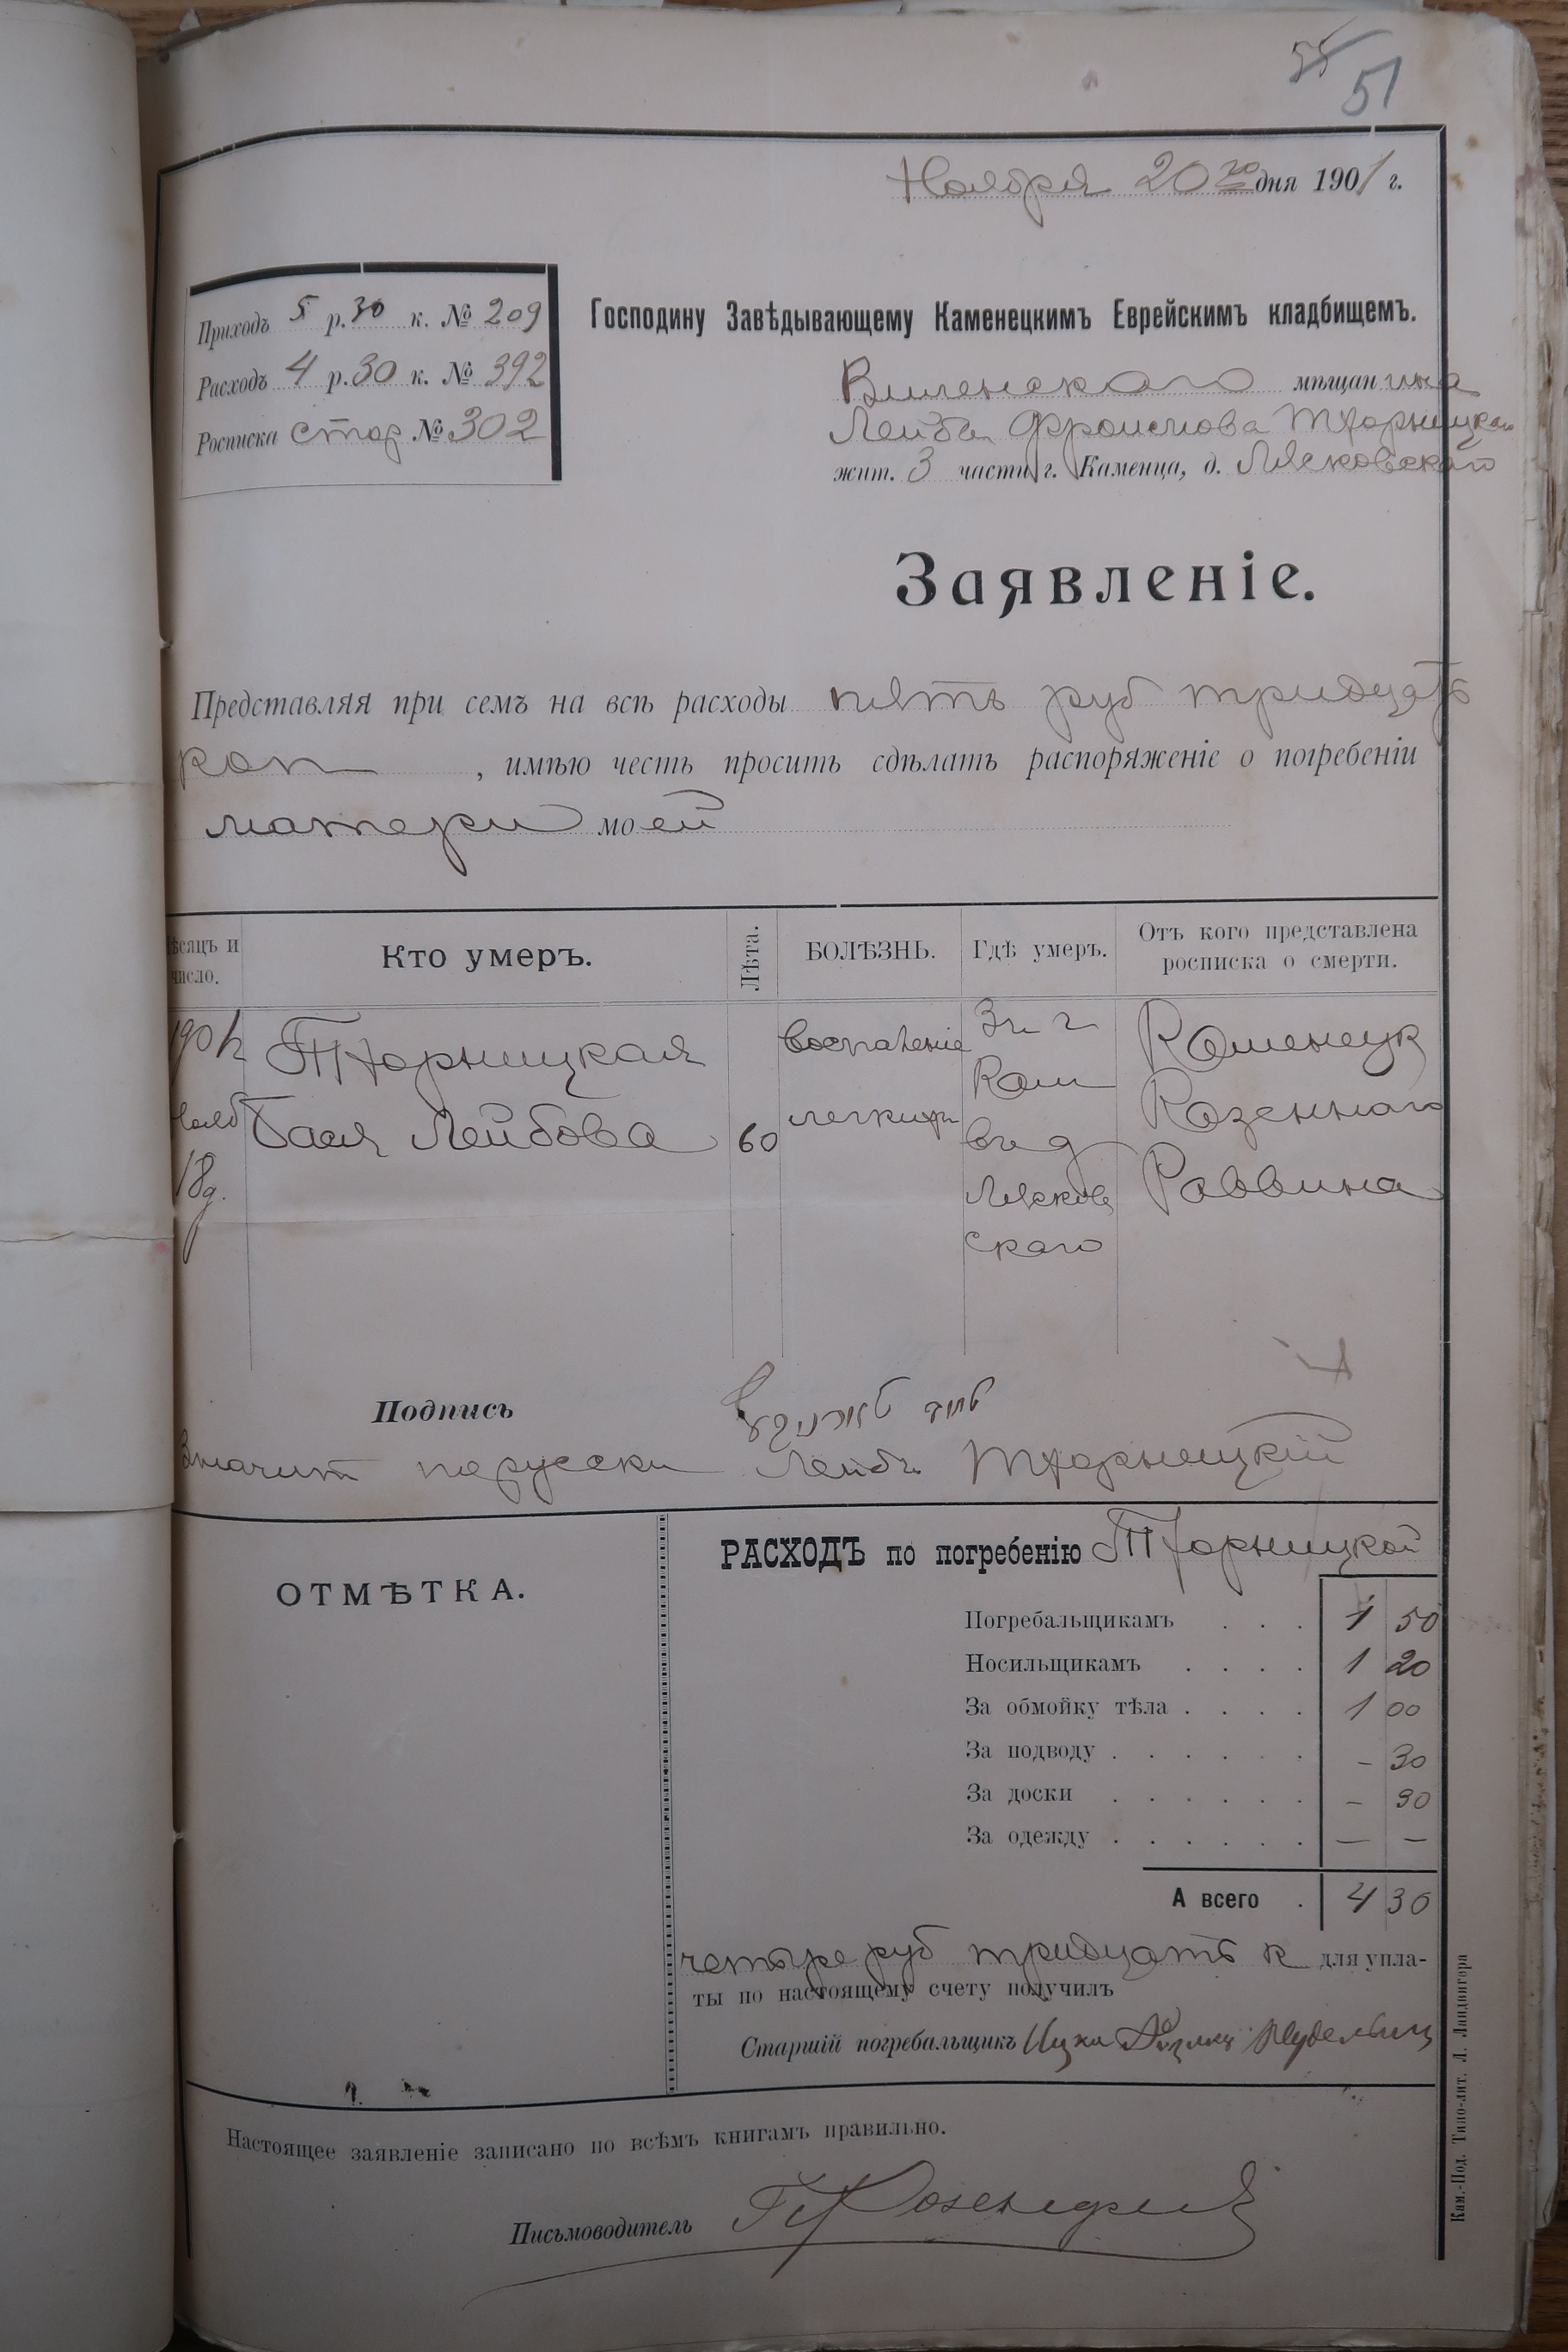 55 51
Ноября 20го дня 1901 г.
Приходъ 5 р. 30 к. № 209
Расходъ 4 р. 30 к. № 392
Росписка стор № 302
Господину Завѣдывающему Каменецкимъ Еврейскимъ кладбищемъ.
Виленского мѣщанина
Лейба Фроимова
жит. 3 части г. Каменца, д. Лясковскаго
Заявленіе.
Представляя при семъ на всѣ расходы пять руб тридцать
коп , имѣю честь просить сдѣлать распоряженіе о погребеніи
матери моей
Мѣсяцъ и число.
Кто умеръ.
Лѣта.
БОЛѢЗНЬ.
Гдѣ умеръ.
Отъ кого представлена росписка о смерти.
1901
Нояб
18д.
Баея Лейбова
60
воспаленіе
легкихъ
3ч г
Кам
въ д
Лясков
скаго
Каменецк
Казеннаго
Раввина
Подпись
значит по русски Лейбъ
ОТМѢТКА.
РАСХОДЪ по погребенію
Погребальщикамъ . . . 1 50
Носильщикамъ . . . . 1 20
За обмойку тѣла . . . . 1 00
За подводу . . . . . . – 30
За доски . . . . . . – 30
За одежду . . . . . . — —
А всего . 4 30
четыре руб тридцать к для упла-
ты по настоящему счету получилъ
Старшій погребальщикъ
Настоящее заявленіе записано по всѣмъ книгамъ правильно.
Письмоводитель
Кам.-Под. Типо-лит. Л. Ландвигера